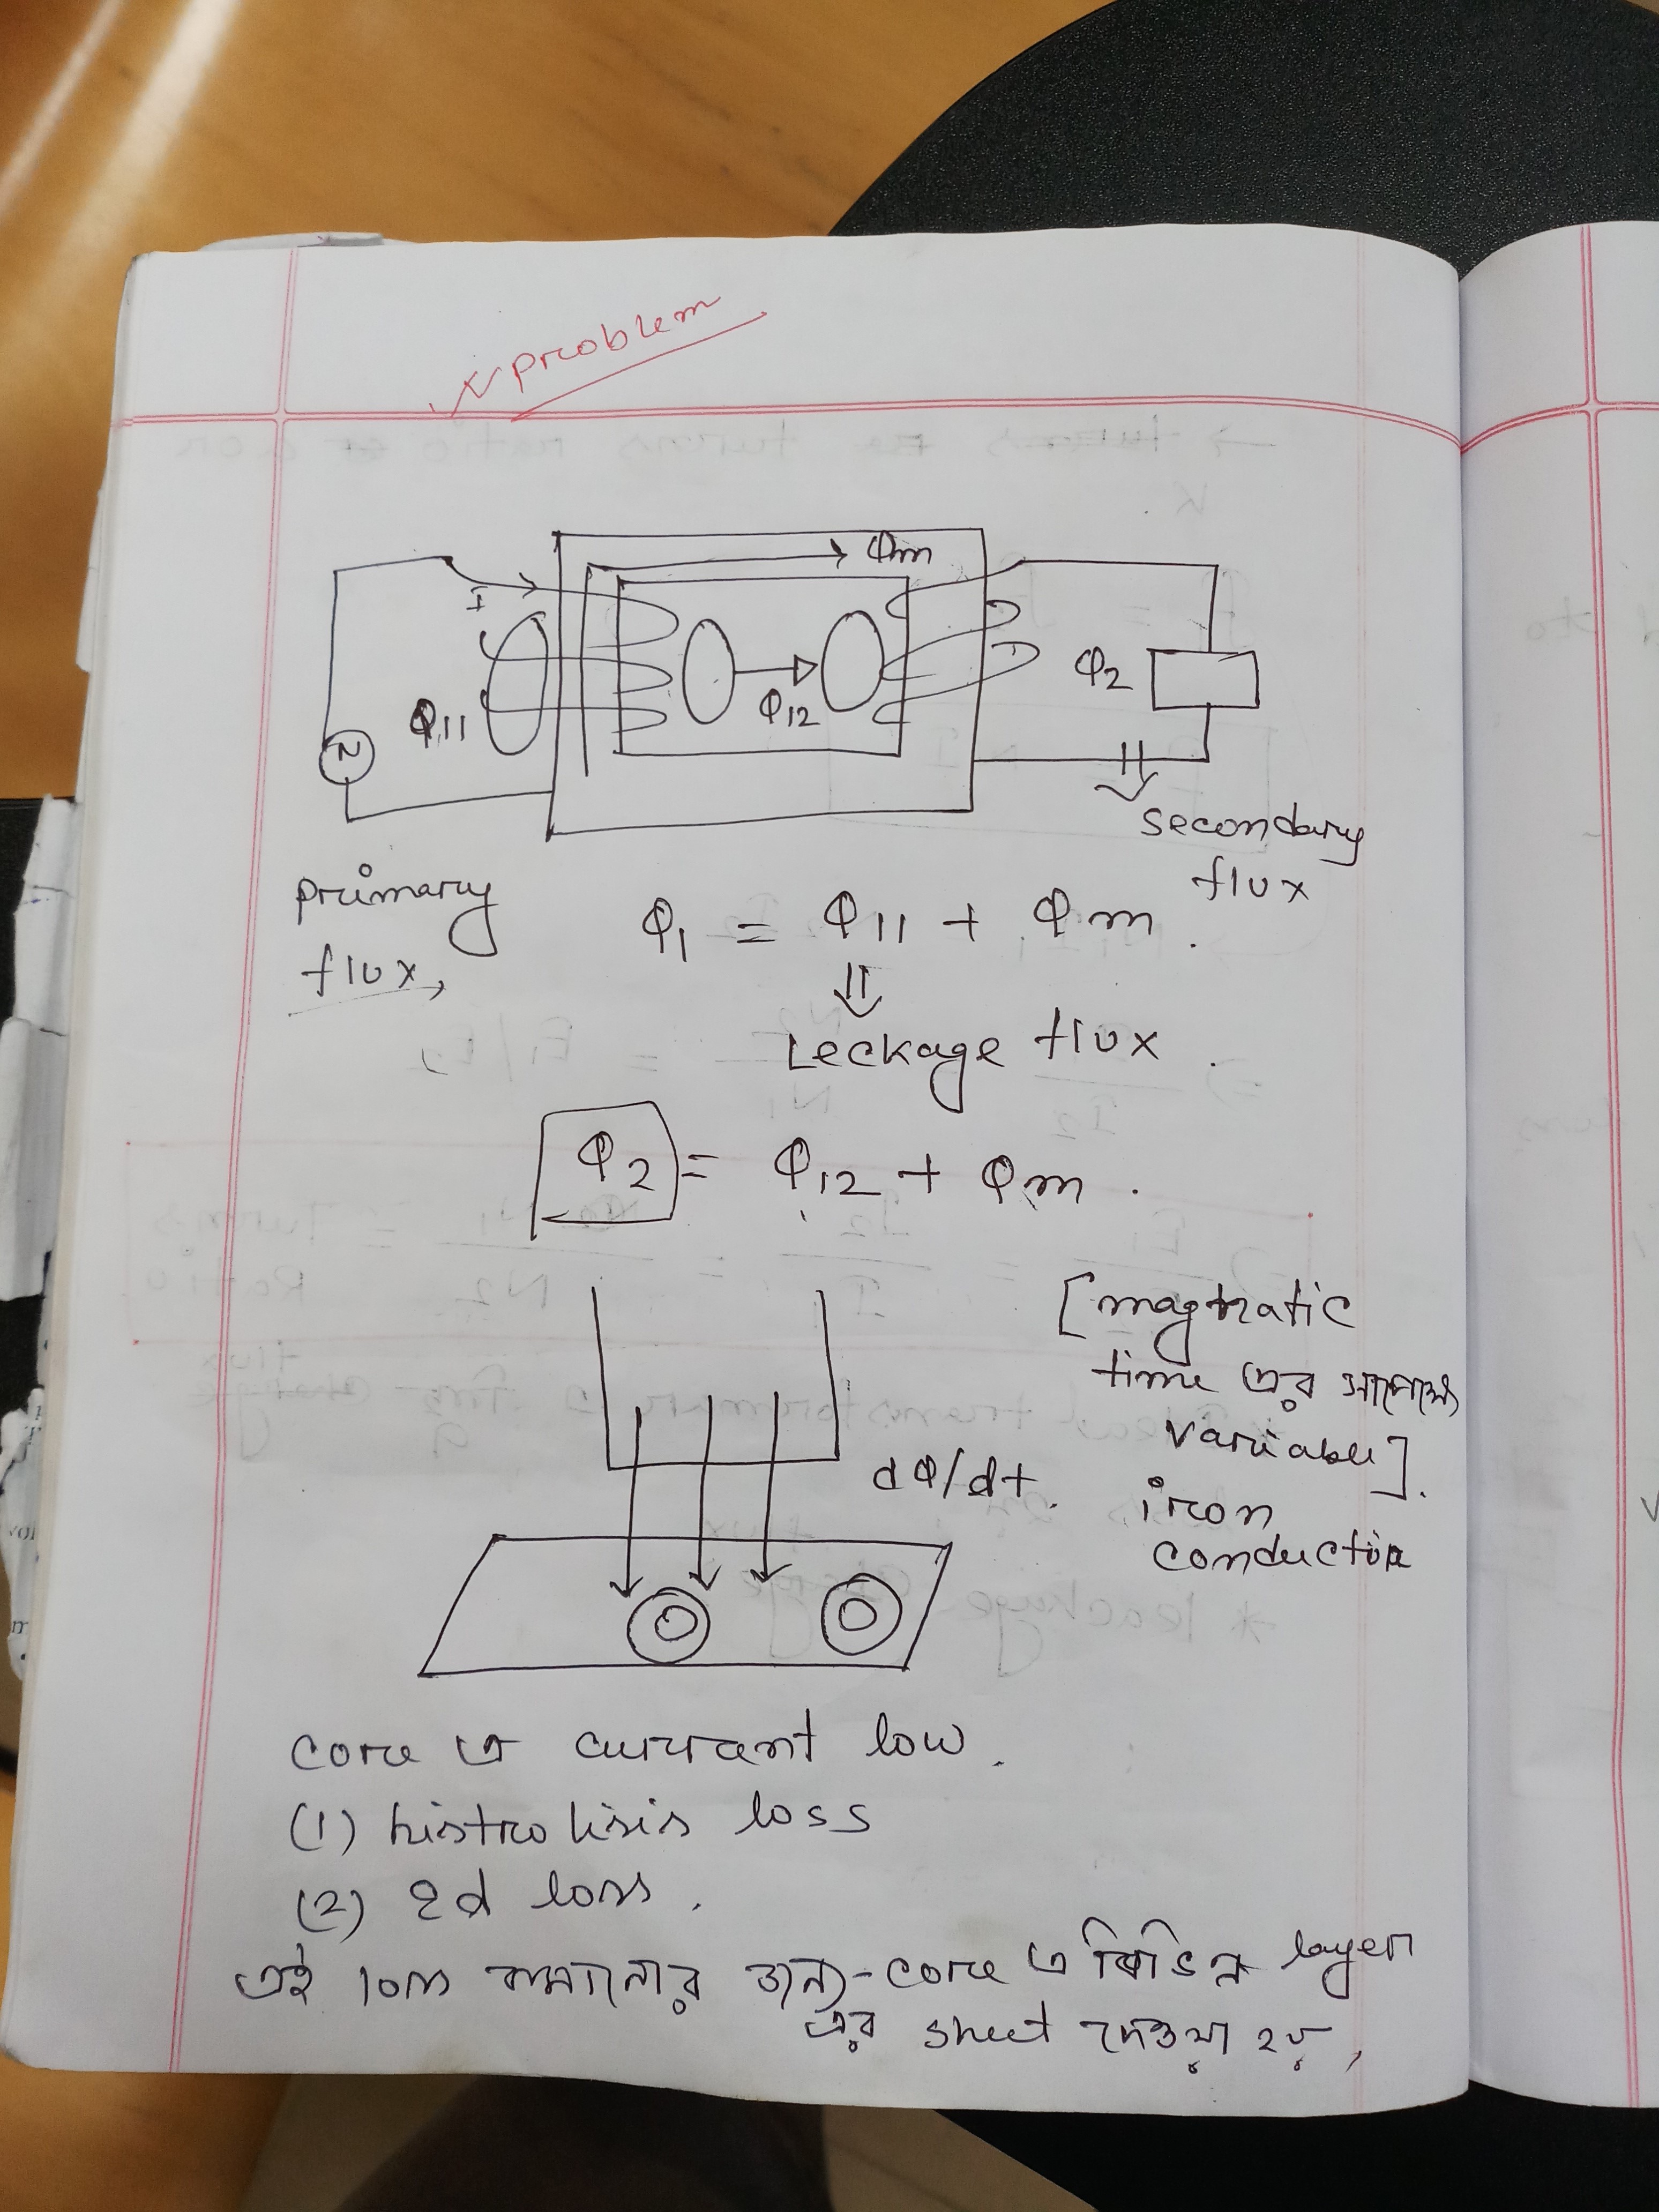 problem
I
Φm
Φ11
Φ12
Φ2
N
secondary
flux
primary
flux,
Φ1 = Φ11 + Φm.
Leckage flux.
Φ2 = Φ12 + Φm.
[magnatic
time এর সাপেক্ষে
variable].
dΦ/dt.
iron
conductor
core এ current low.
(1) histrolisis loss
(2) ed loss.
এই loss কমানোর জন্য-core এ বিভিন্ন layer
এর sheet দেওয়া হয়,